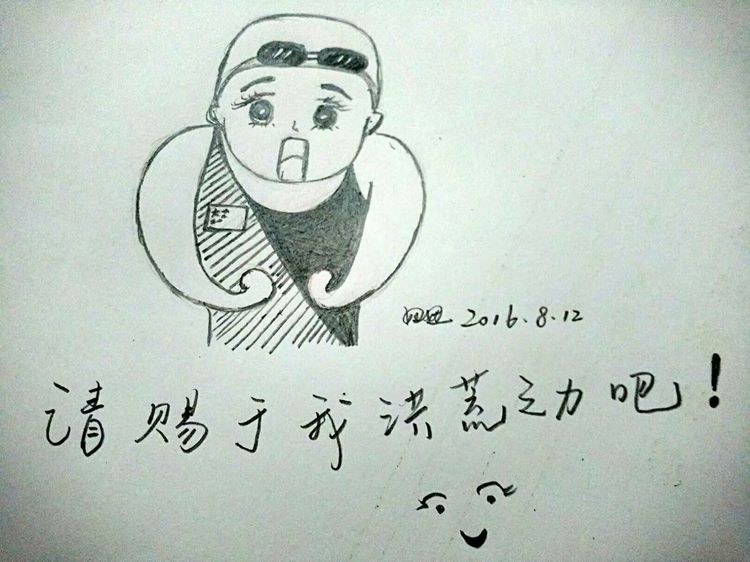 2016.8.12
请赐于我洪荒之力吧！